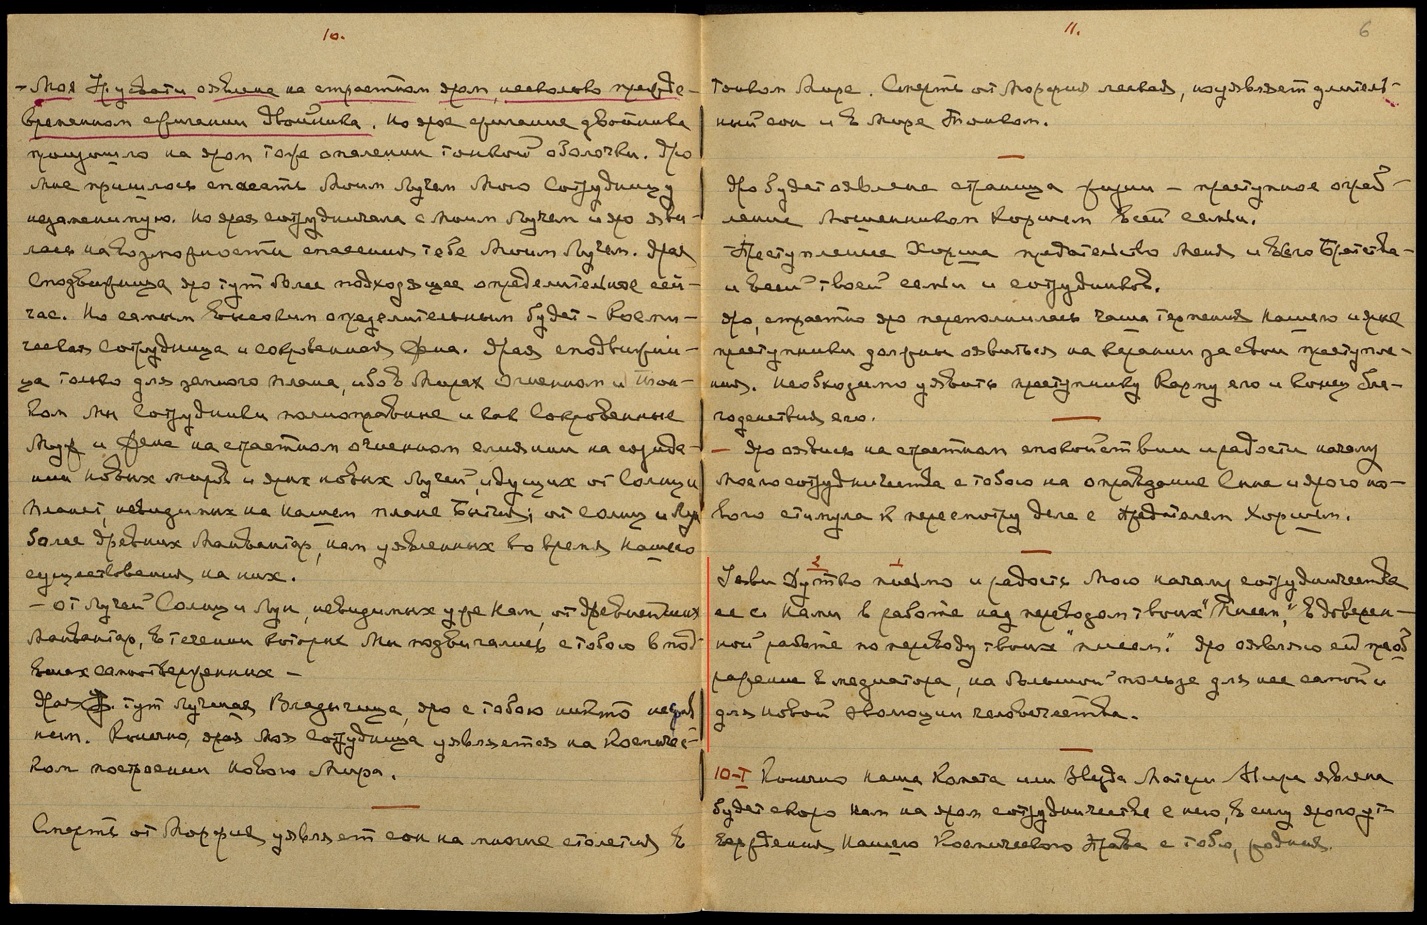 10.
– Моя Урувати явлена на страстном яром, несколько прежде-
временном сжигании двойника. Но ярое сжигание двойника
произошло на яром тоже опалении тонкой оболочки. Яро
Мне пришлось спасать Моим Лучем Мою Сотрудницу
незаменимую. Но ярая сотрудничала с Моим Лучем и яро яви-
лась на возможности спасения тебе Моим Лучем. Ярая
Сподвижница яро тут более подходящее определительное сей-
час. Но самым высоким определительным будет – Косми-
ческая Сотрудница и сокровенная Жена. Ярая сподвижни-
ца только для земного плана, ибо в Мирах Огненном и Тон-
ком мы Сотрудники полноправные и как Сокровенные
Муж и Жена на страстном огненном слиянии на созида-
нии новых миров и ярых новых Лучей, идущих от Солнц и
планет, невидимых на нашем плане Бытия; от Солнц и Лун
более древних Манвантар, нам уявленных во время нашего
существования на них.
– от Лучей Солнц и Лун, невидимых уже нам, от древнейших
Манвантар, в течении которых Мы подвизались с тобою в под-
вигах самоотверженных –
Ярая тут лучшая Владычица, яро с тобою никто не срав
ним. Конечно, ярая Моя Сотрудница уявляется на Космичес-
ком построении Нового Мира.
Смерть от Морфия уявляет сон на многие столетия в
11.
6
тонком Мире. Смерть от Морфия легкая, но уявляет длитель-
ный сон и в Мире Тонком.
Яро будет оявлена страница жизни – преступное ограб-
ление Мошенником Хоршем всей семьи.
Преступление Хорша предательство Меня и всего Братства-
и всей твоей семьи и сотрудников.
Яро, страстно яро переполнилась чаша терпения нашего и ярые
преступники должны оявиться на карании за свои преступле-
ния. Необходимо уявить преступнику Карму его и конец бла-
годенствия его.
– Яро оявись на страстном спокойствии и радости началу
Моего сотрудничества с тобою на оправдание Сына и ярого но-
вого стимула к пересмотру дела с Предателем Хоршем.
2 1
Уяви Дутко письмо и радость Мою началу сотрудничества
ее с Нами в работе над переводом твоих "Писем", в доверен-
ной работе по переводу твоих "писем". Яро оявляю ей преоб
ражение в медиатора, на большой пользе для нее самой и
для новой эволюции человечества.
10–I Конечно наша Комета или Звезда Матери Мира явлена
будет скоро нам на яром сотрудничестве с нею, в силу ярого ут-
верждения Нашего Космического Права с тобою, родная.